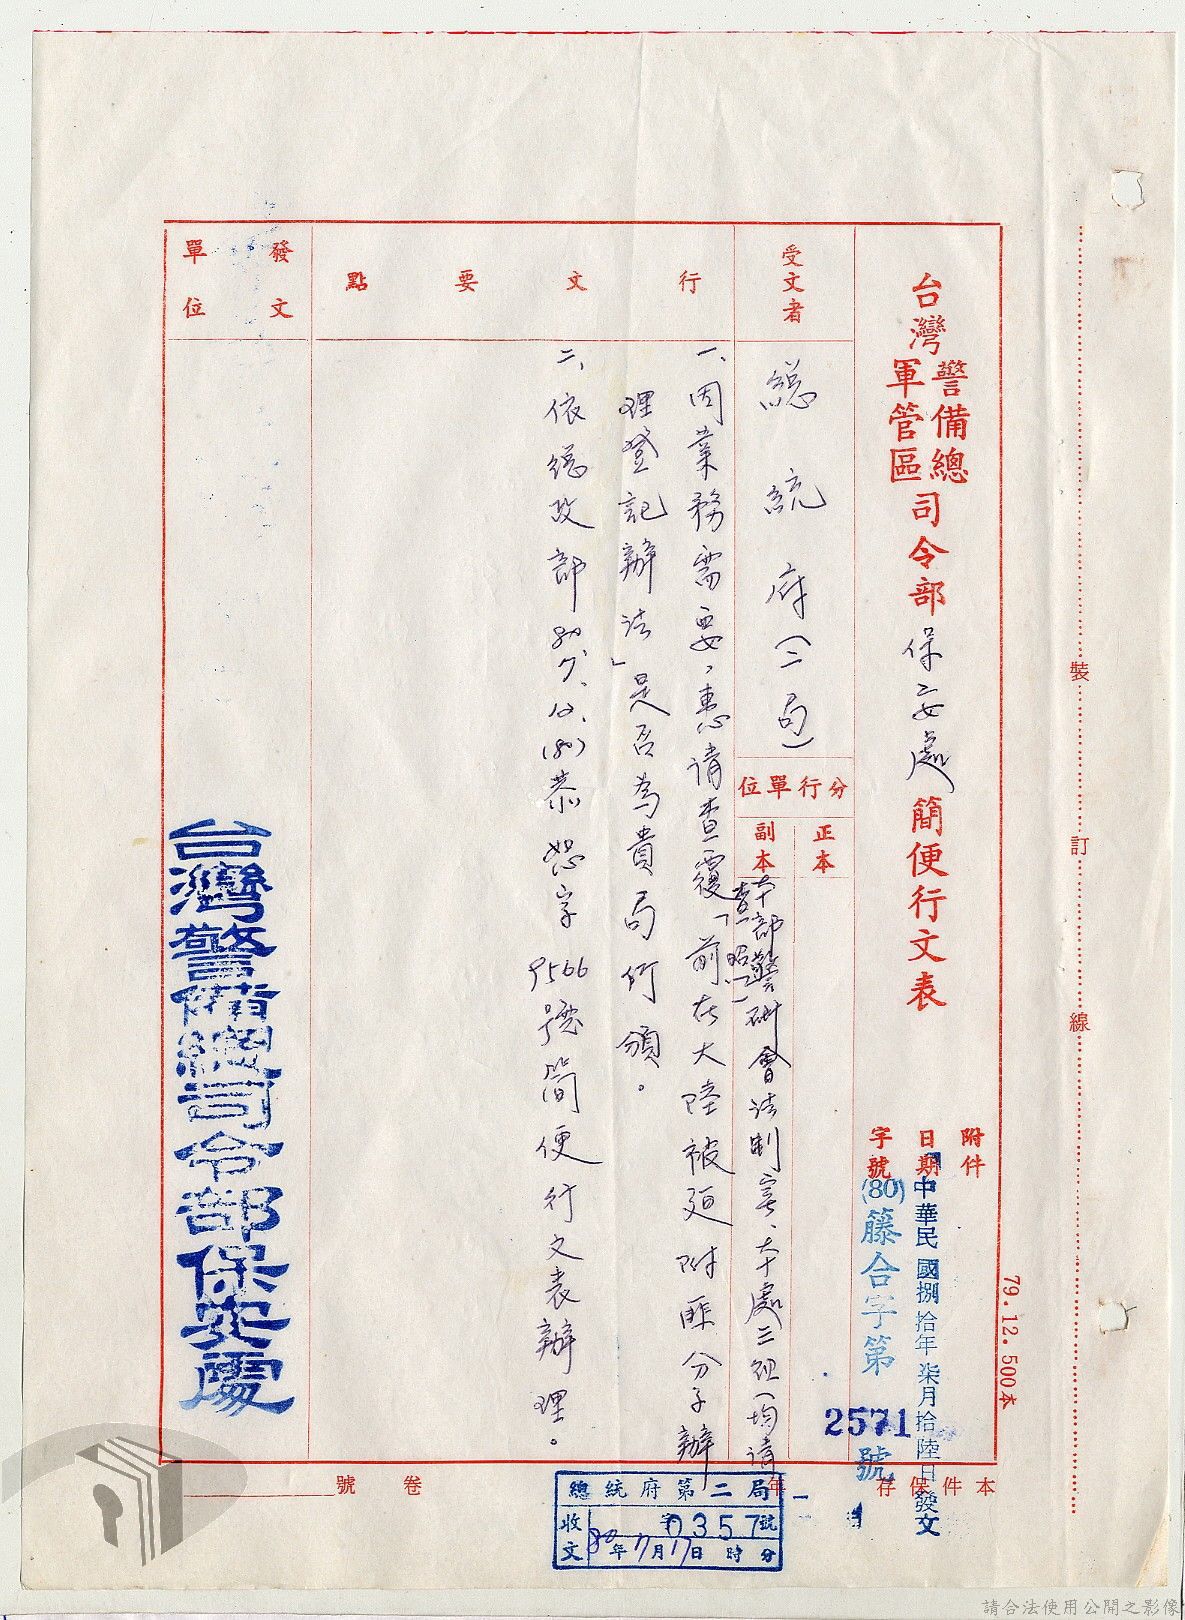 台灣警備總軍管區司令部保安處簡便行文表
附件
日期 中華民國捌拾年柒月拾陸日發文
字號 (80)籐合字第2571號
79.12.500本
受文者
總統府(二局)
分行單位
正本
副本
本部警研會法制室、本處三組(均請
查照)
行文要點
一、因業務需要,惠請查覆「前在大陸被迫附匪分子辦
理登記辦法」是否為貴局所頒。
二、依總政部80.7.12.(80)恭恕字9566號簡便行文表辦理。
發文單位
台灣警備總司令部保安處
本件保存 年
卷號
總統府第二局
收文
字0357號
80年7月17日 時 分
裝
訂
線
請合法使用公開之影像